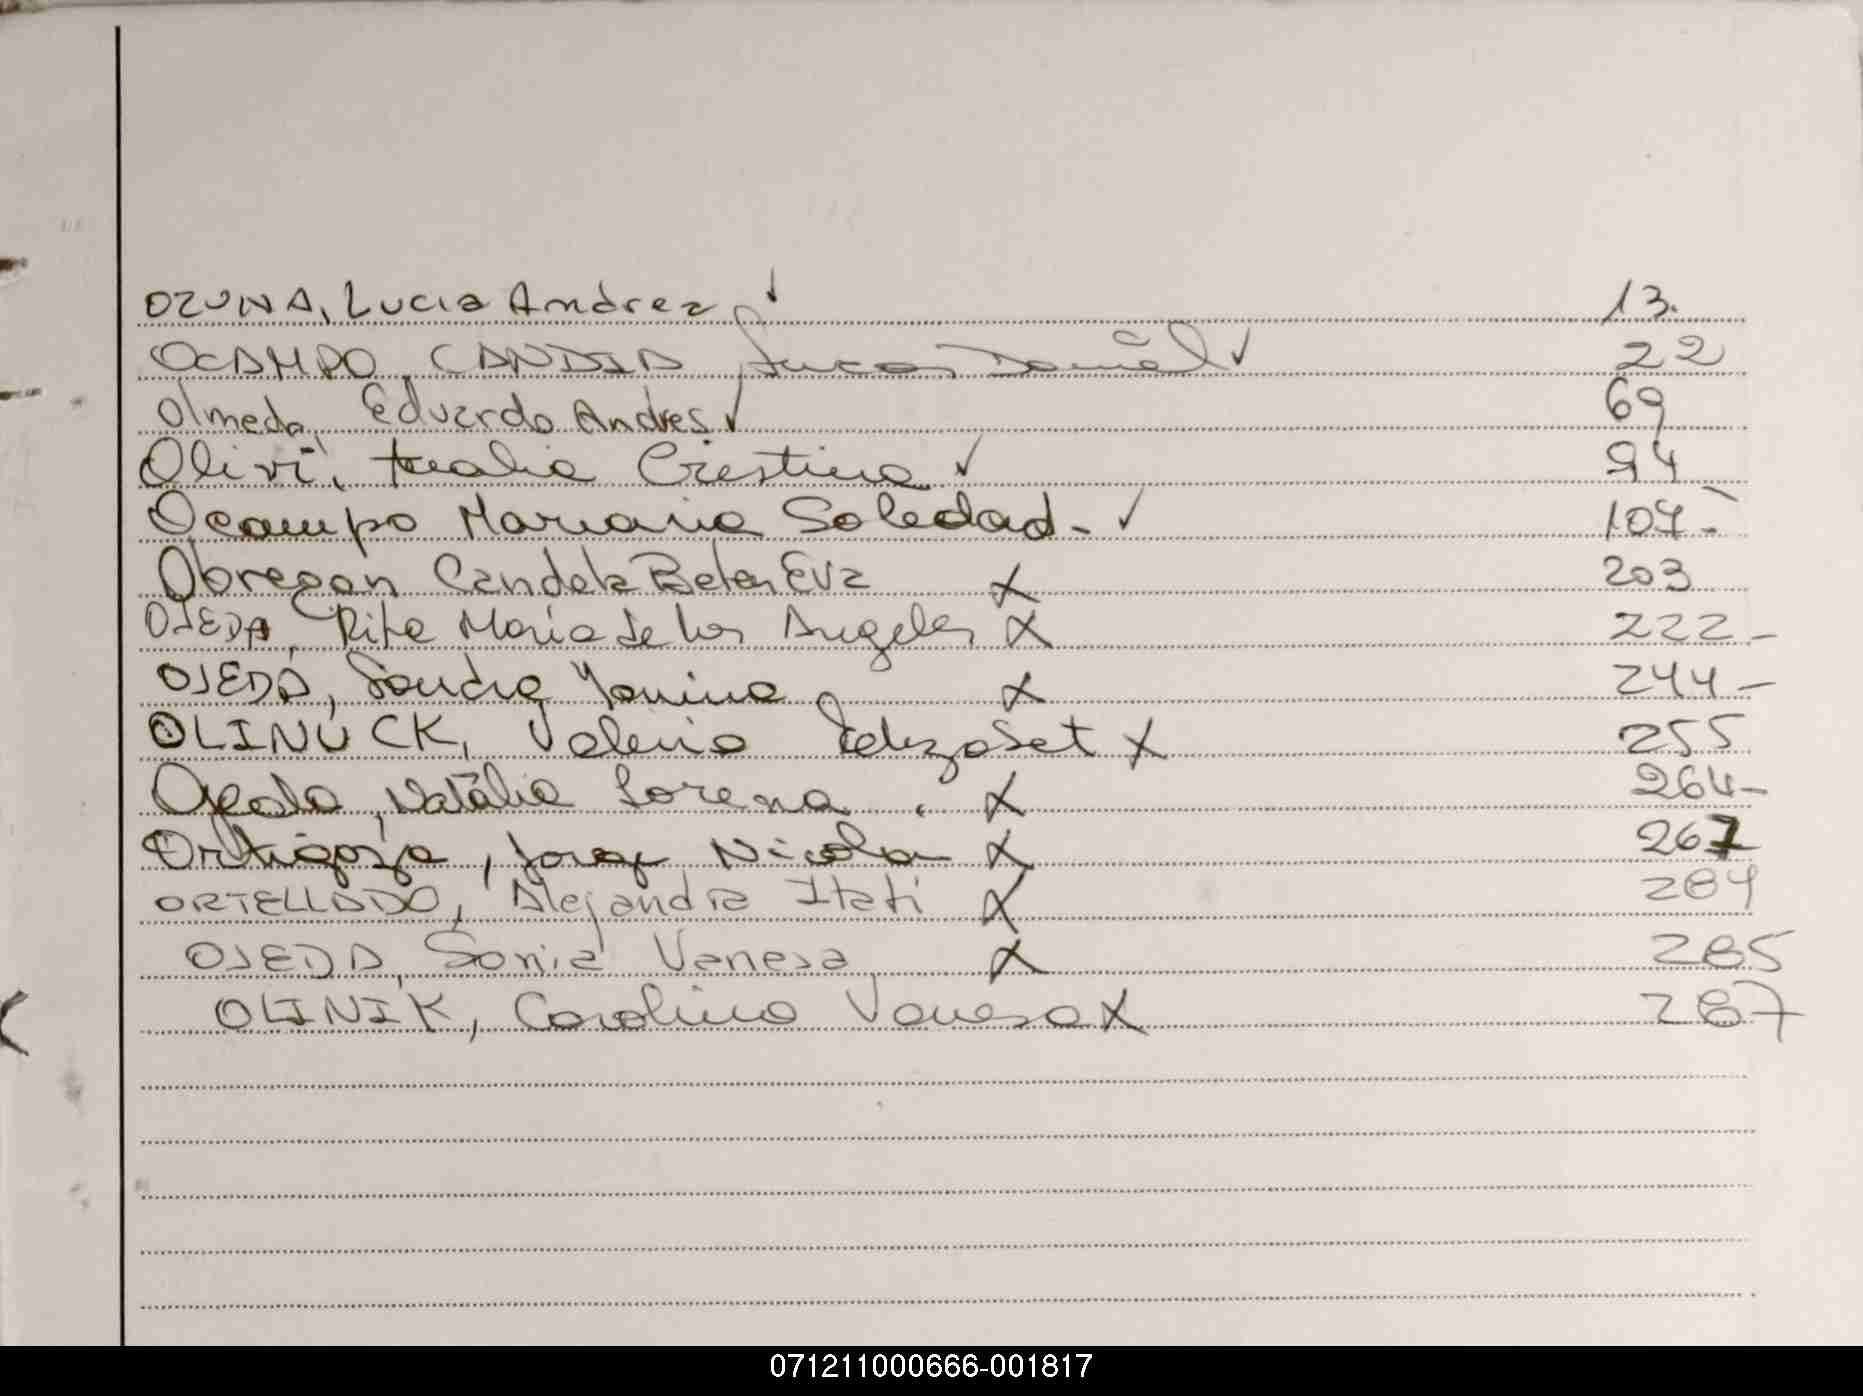 OZUNA, Lucia Andrea ✓ 13.
OCAMPO, CANDIA Lucas Daniel ✓ 22
Olmedo, Eduardo Andres ✓ 69
Olivi, Analia Cristina ✓ 94
Ocampo Mariana Soledad - ✓ 107-
Obregon Candela Belen Eva X 203
OJEDA, Rita María de los Angeles X 222-
OJEDA, Sandra Yanina X 244-
OLINUCK, Valeria X 255
Ojeda, Natalia Lorena . X 264-
Ortigoza, Jorge Nicolas X 267
ORTELLADO, Alejandra Itati X 284
OJEDA, Sonia Vanesa X 285
OLINIK, Carolina Vanesa X 287
071211000666-001817